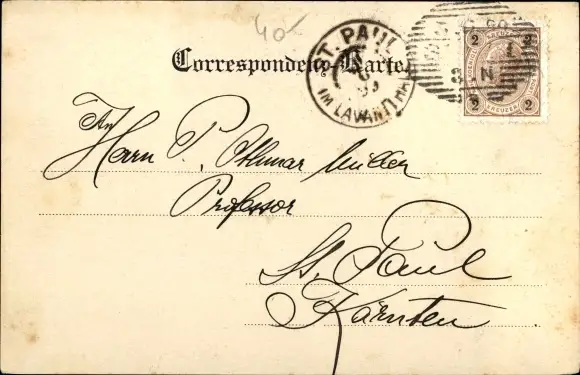 40-
Correspondenz-Karte.
ST. PAUL
IM LAVANTTHAL
2 2
KREUZER
2 2
An
Herrn P. Othmar Müller
Professor
St. Paul
Kärnten